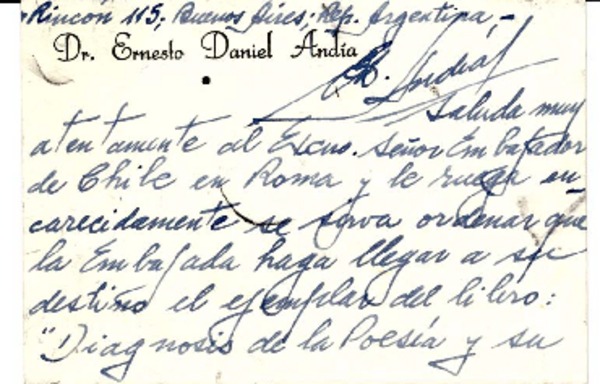 Rincón 115, Buenos Aires, Rep. Argentina,-
Dr. Ernesto Daniel Andía
Andía
saluda muy
atentamente al Excmo. Señor Embajador
de Chile en Roma y le ruega en
carecidamente se sirva ordenar que
la Embajada haga llegar a su
destino el ejemplar del libro:
"Diagnosis de la Poesía y su